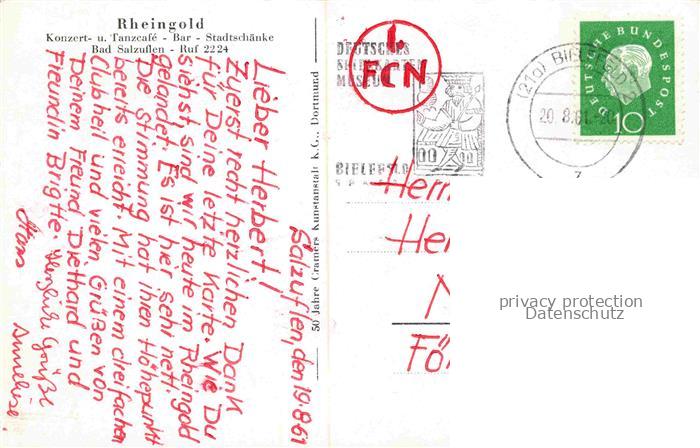 Rheingold
Konzert- u. Tanzcafé - Bar - Stadtschänke
Bad Salzuflen - Ruf 2224
Salzuflen, den 19.8.61
Lieber Herbert!
Zuerst recht herzlichen Dank
für Deine letzte Karte. Wie Du
siehst, sind wir heute im Rheingold
gelandet. Es ist hier sehr nett.
Die Stimmung hat ihren Höhepunkt
bereits erreicht. Mit einem dreifachen
Clubheil und vielen Grüßen von
Deinem Freund Diethard und
Freundin Brigitte. Herzliche Grüße
Hans Anneliese
50 Jahre Cramers Kunstanstalt K.G., Dortmund
1.
FCN
DEUTSCHES
SPIELKARTEN
MUSEUM
BIELEFELD
(21a) BIELEFELD
20.8.61.-20
z
DEUTSCHE BUNDESPOST
10
Herr
He
N
Fö
privacy protection
Datenschutz